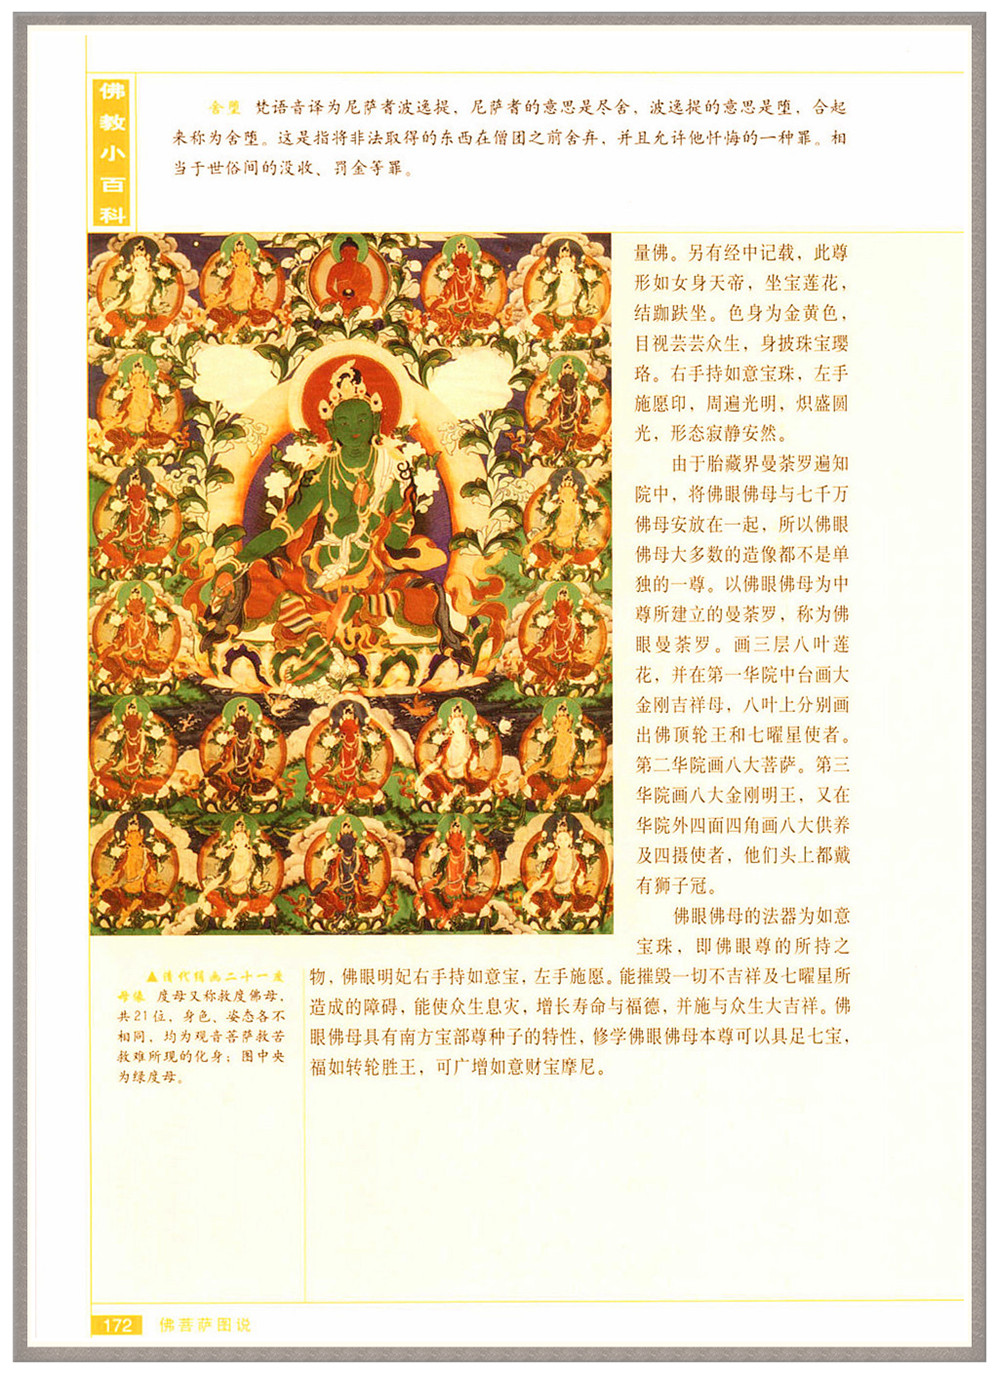 佛教小百科
舍堕 梵语音译为尼萨耆波逸提，尼萨耆的意思是尽舍，波逸提的意思是堕，合起
来称为舍堕。这是指将非法取得的东西在僧团之前舍弃，并且允许他忏悔的一种罪。相
当于世俗间的没收、罚金等罪。
量佛。另有经中记载，此尊
形如女身天帝，坐宝莲花，
结跏趺坐。色身为金黄色，
目视芸芸众生，身披珠宝璎
珞。右手持如意宝珠，左手
施愿印，周遍光明，炽盛圆
光，形态寂静安然。
由于胎藏界曼荼罗遍知
院中，将佛眼佛母与七千万
佛母安放在一起，所以佛眼
佛母大多数的造像都不是单
独的一尊。以佛眼佛母为中
尊所建立的曼荼罗，称为佛
眼曼荼罗。画三层八叶莲
花，并在第一华院中台画大
金刚吉祥母，八叶上分别画
出佛顶轮王和七曜星使者。
第二华院画八大菩萨。第三
华院画八大金刚明王，又在
华院外四面四角画八大供养
及四摄使者，他们头上都戴
有狮子冠。
佛眼佛母的法器为如意
宝珠，即佛眼尊的所持之
物，佛眼明妃右手持如意宝，左手施愿。能摧毁一切不吉祥及七曜星所
造成的障碍，能使众生息灾，增长寿命与福德，并施与众生大吉祥。佛
眼佛母具有南方宝部尊种子的特性，修学佛眼佛母本尊可以具足七宝，
福如转轮胜王，可广增如意财宝摩尼。
▲清代绢画二十一度
母像 度母又称救度佛母，
共21位，身色、姿态各不
相同，均为观音菩萨救苦
救难所现的化身；图中央
为绿度母。
172 佛菩萨图说